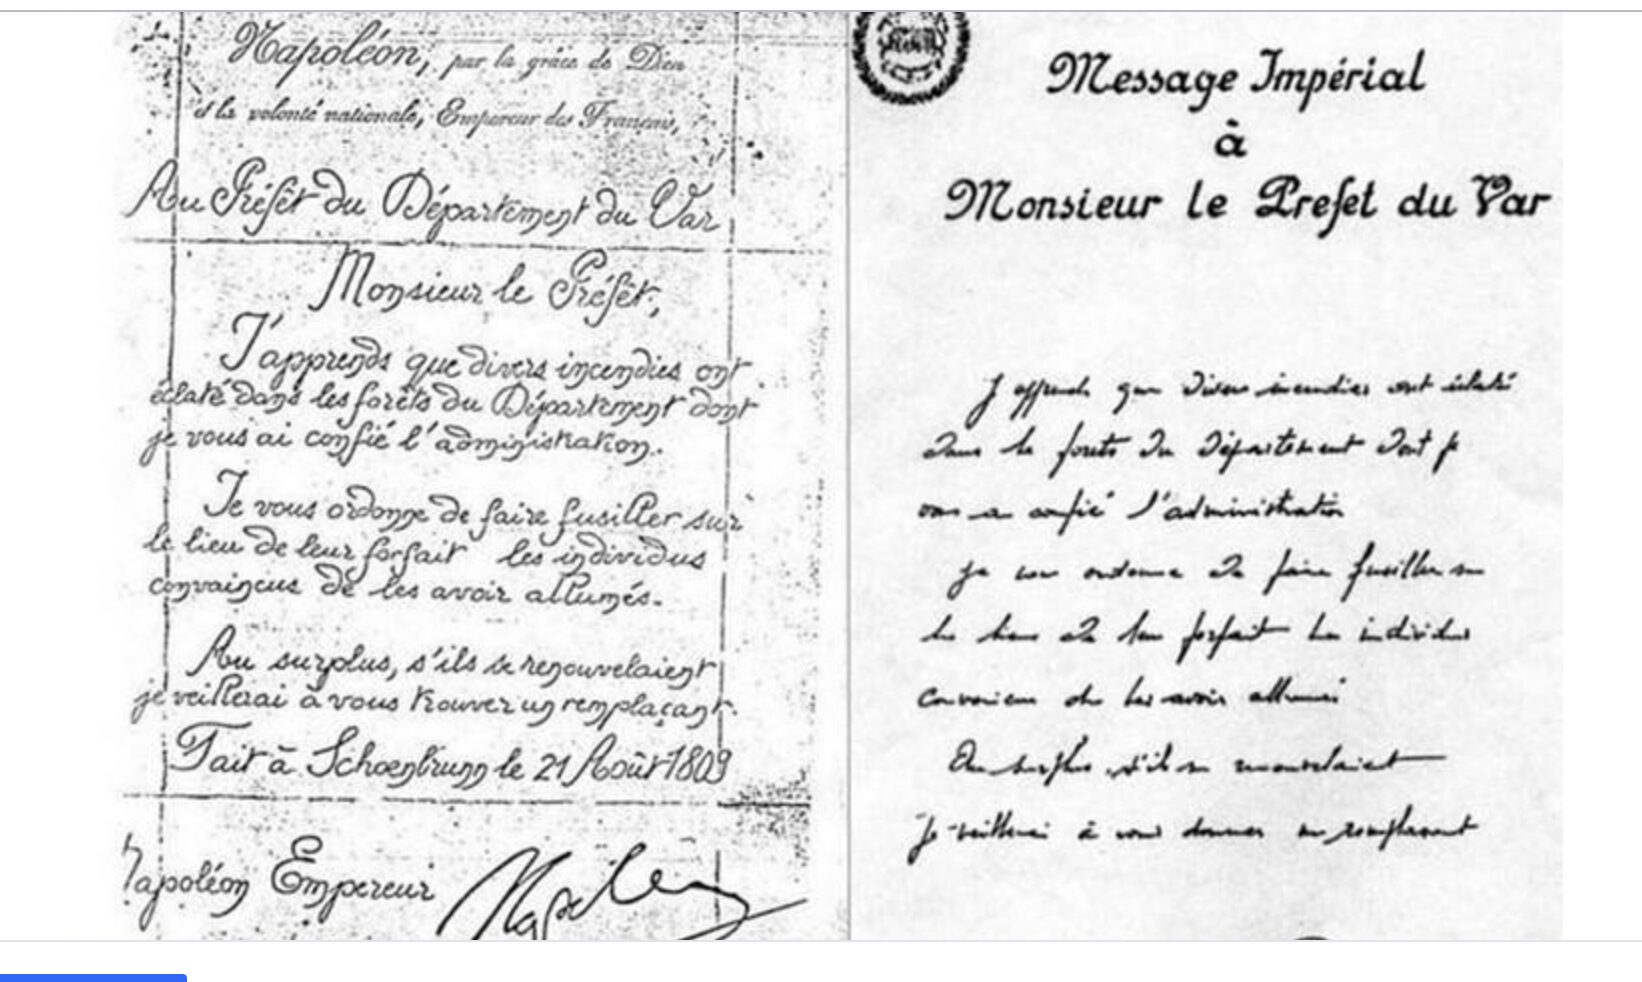 Napoléon, par la grâce de Dieu
et la volonté nationale, Empereur des Français,
Au Préfêt du Département du Var
Monsieur le Préfêt,
J'apprends que divers incendies ont
éclaté dans les forêts du Département dont
je vous ai confié l'administration.
Je vous ordonne de faire fusiller sur
le lieu de leur forfait les individus
convaincus de les avoir allumés.
Au surplus, s'ils se renouvelaient
je veillerai à vous trouver un remplaçant.
Fait à Schoenbrunn le 21 Août 1809
Napoléon Empereur
Message Impérial
à
Monsieur le Prefet du Var
J apprends que divers incendies ont éclaté
dans les forets du département dont je
vous ai confié l'administration
je vous ordonne de faire fusiller sur
le lieu de leur forfait les individus
convaincu de les avoir allumé
Au surplus s'ils se renouvelaient
je veillerai à vous donner un remplacant